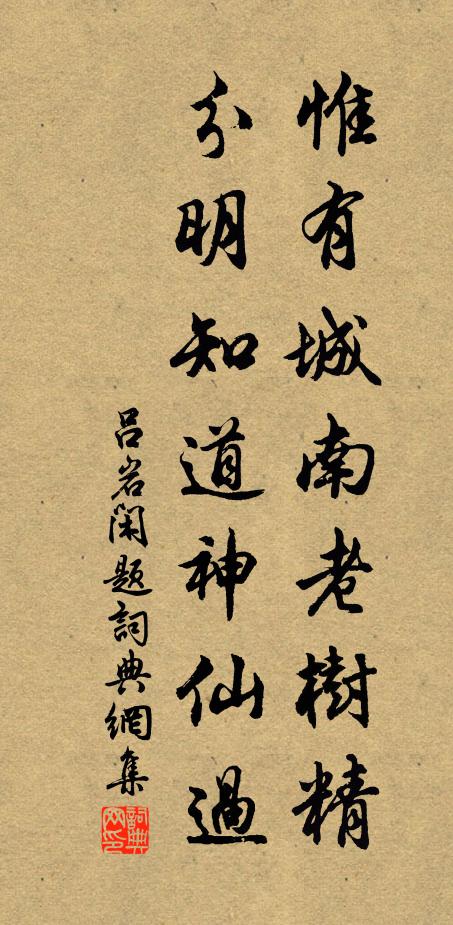 惟有城南老樹精
分明知道神仙過
呂岩閑題詞典網集
詞典網印